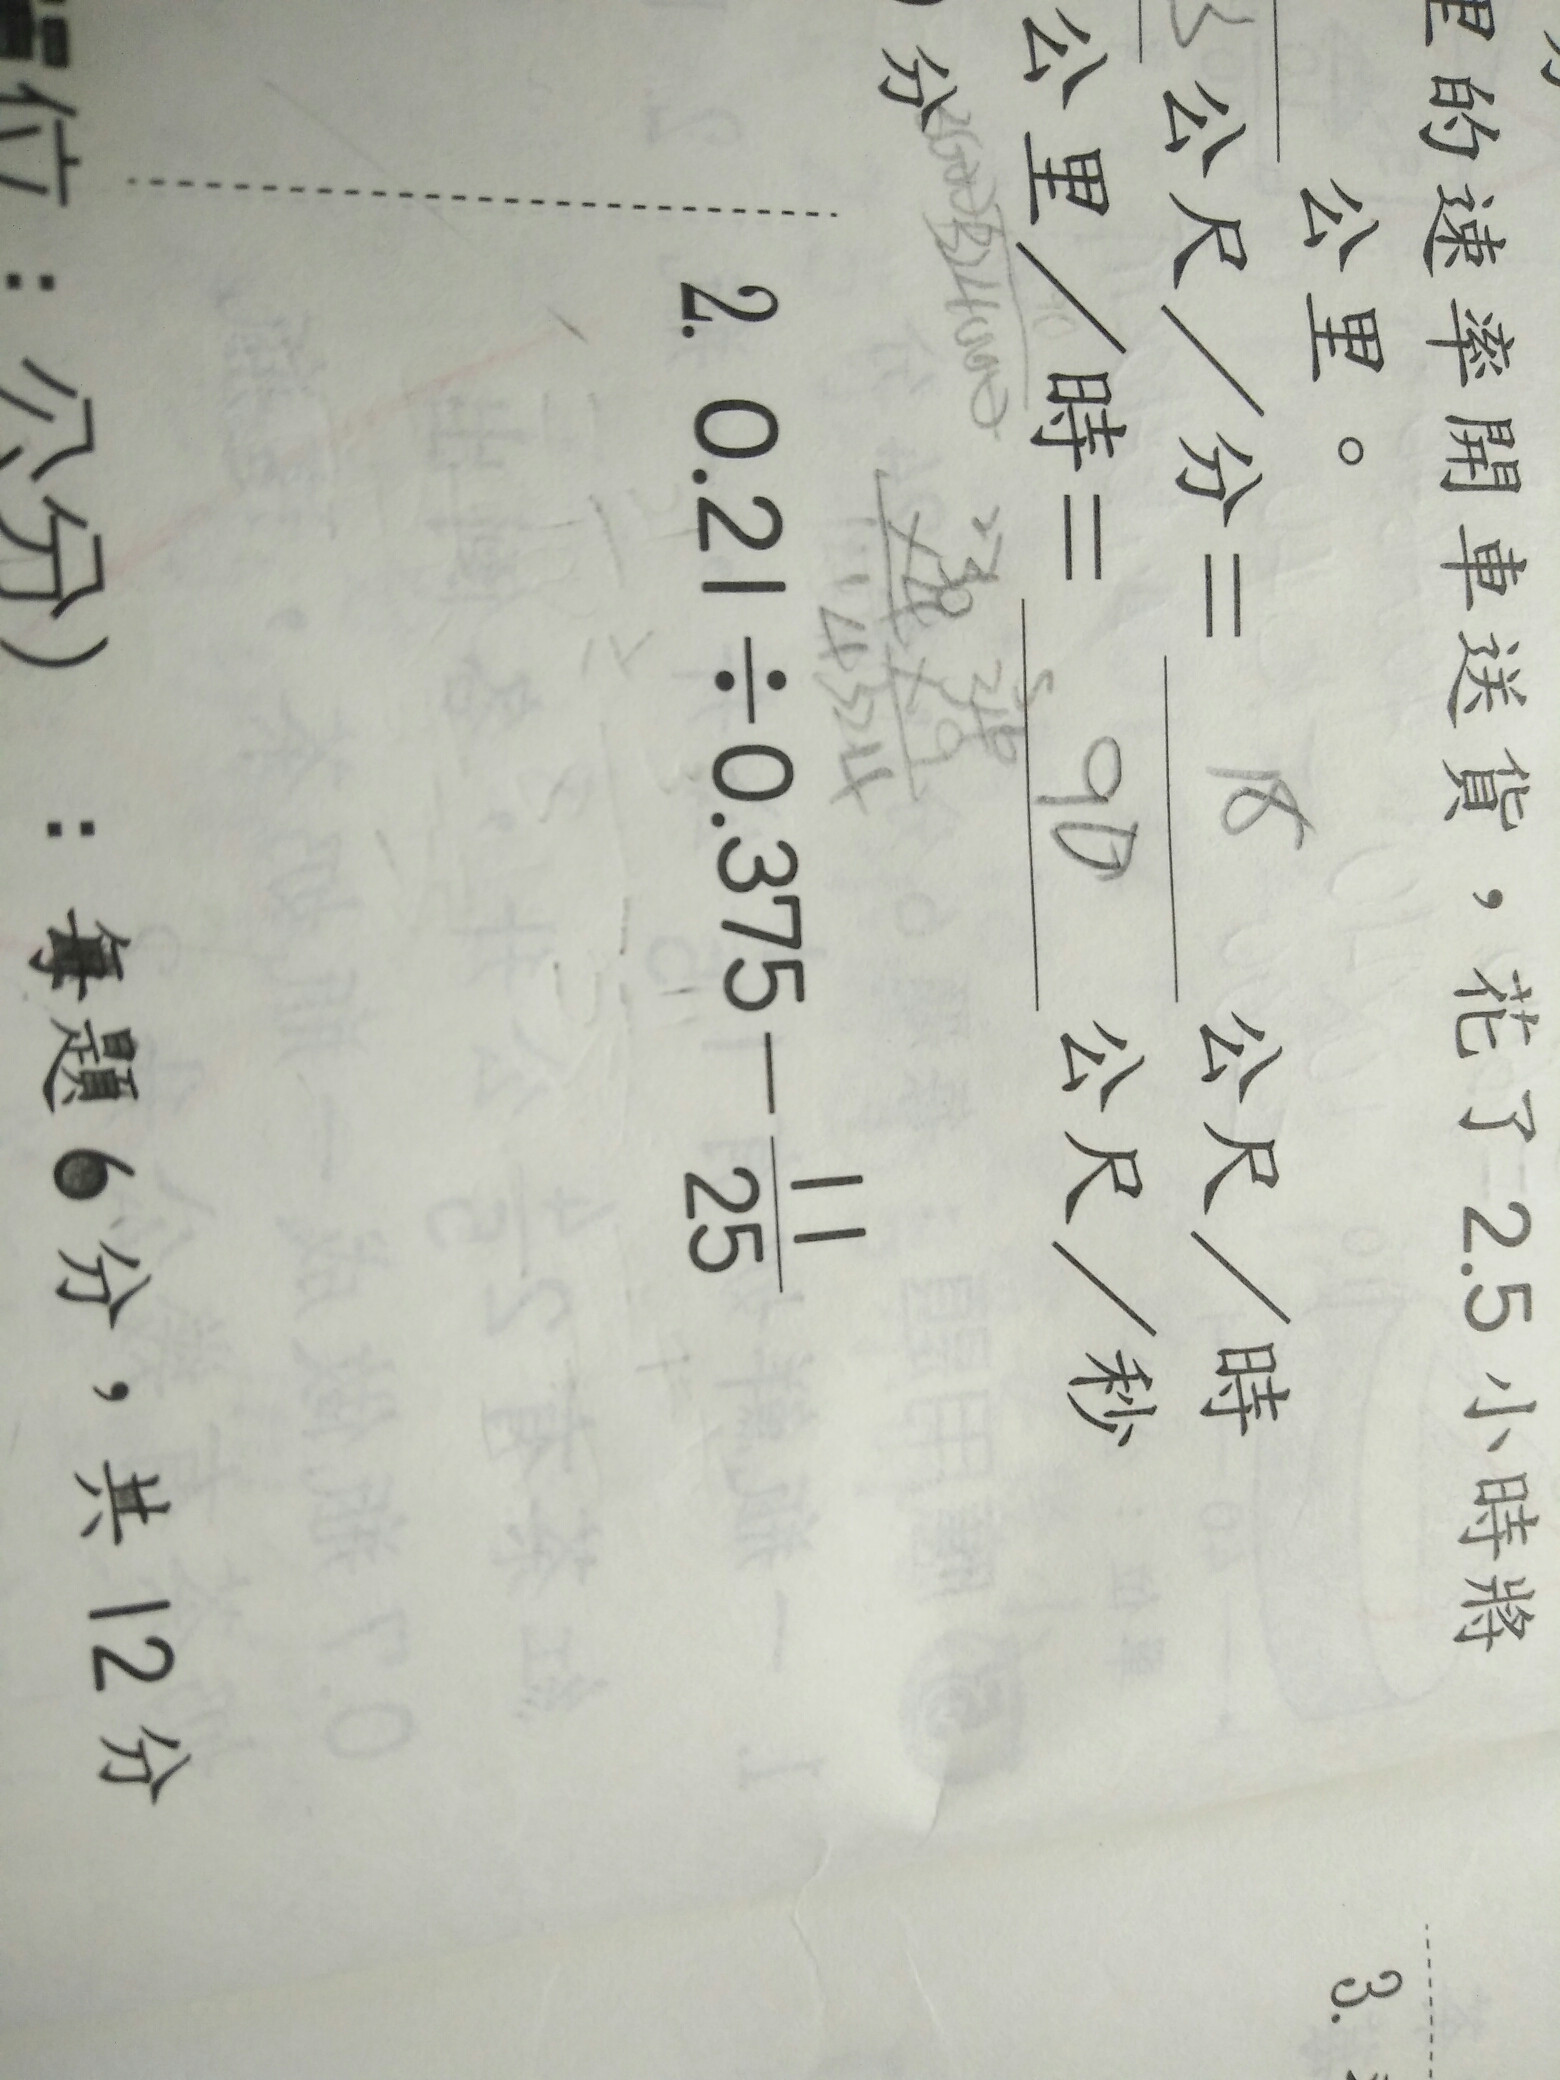 里的速率開車送貨，花了2.5小時將
公里。
公尺／分＝ 18 公尺／時
公里／時＝ 90 公尺／秒
)分
2. 0.21÷0.375－11/25
3.
位：公分)：每題6分，共12分